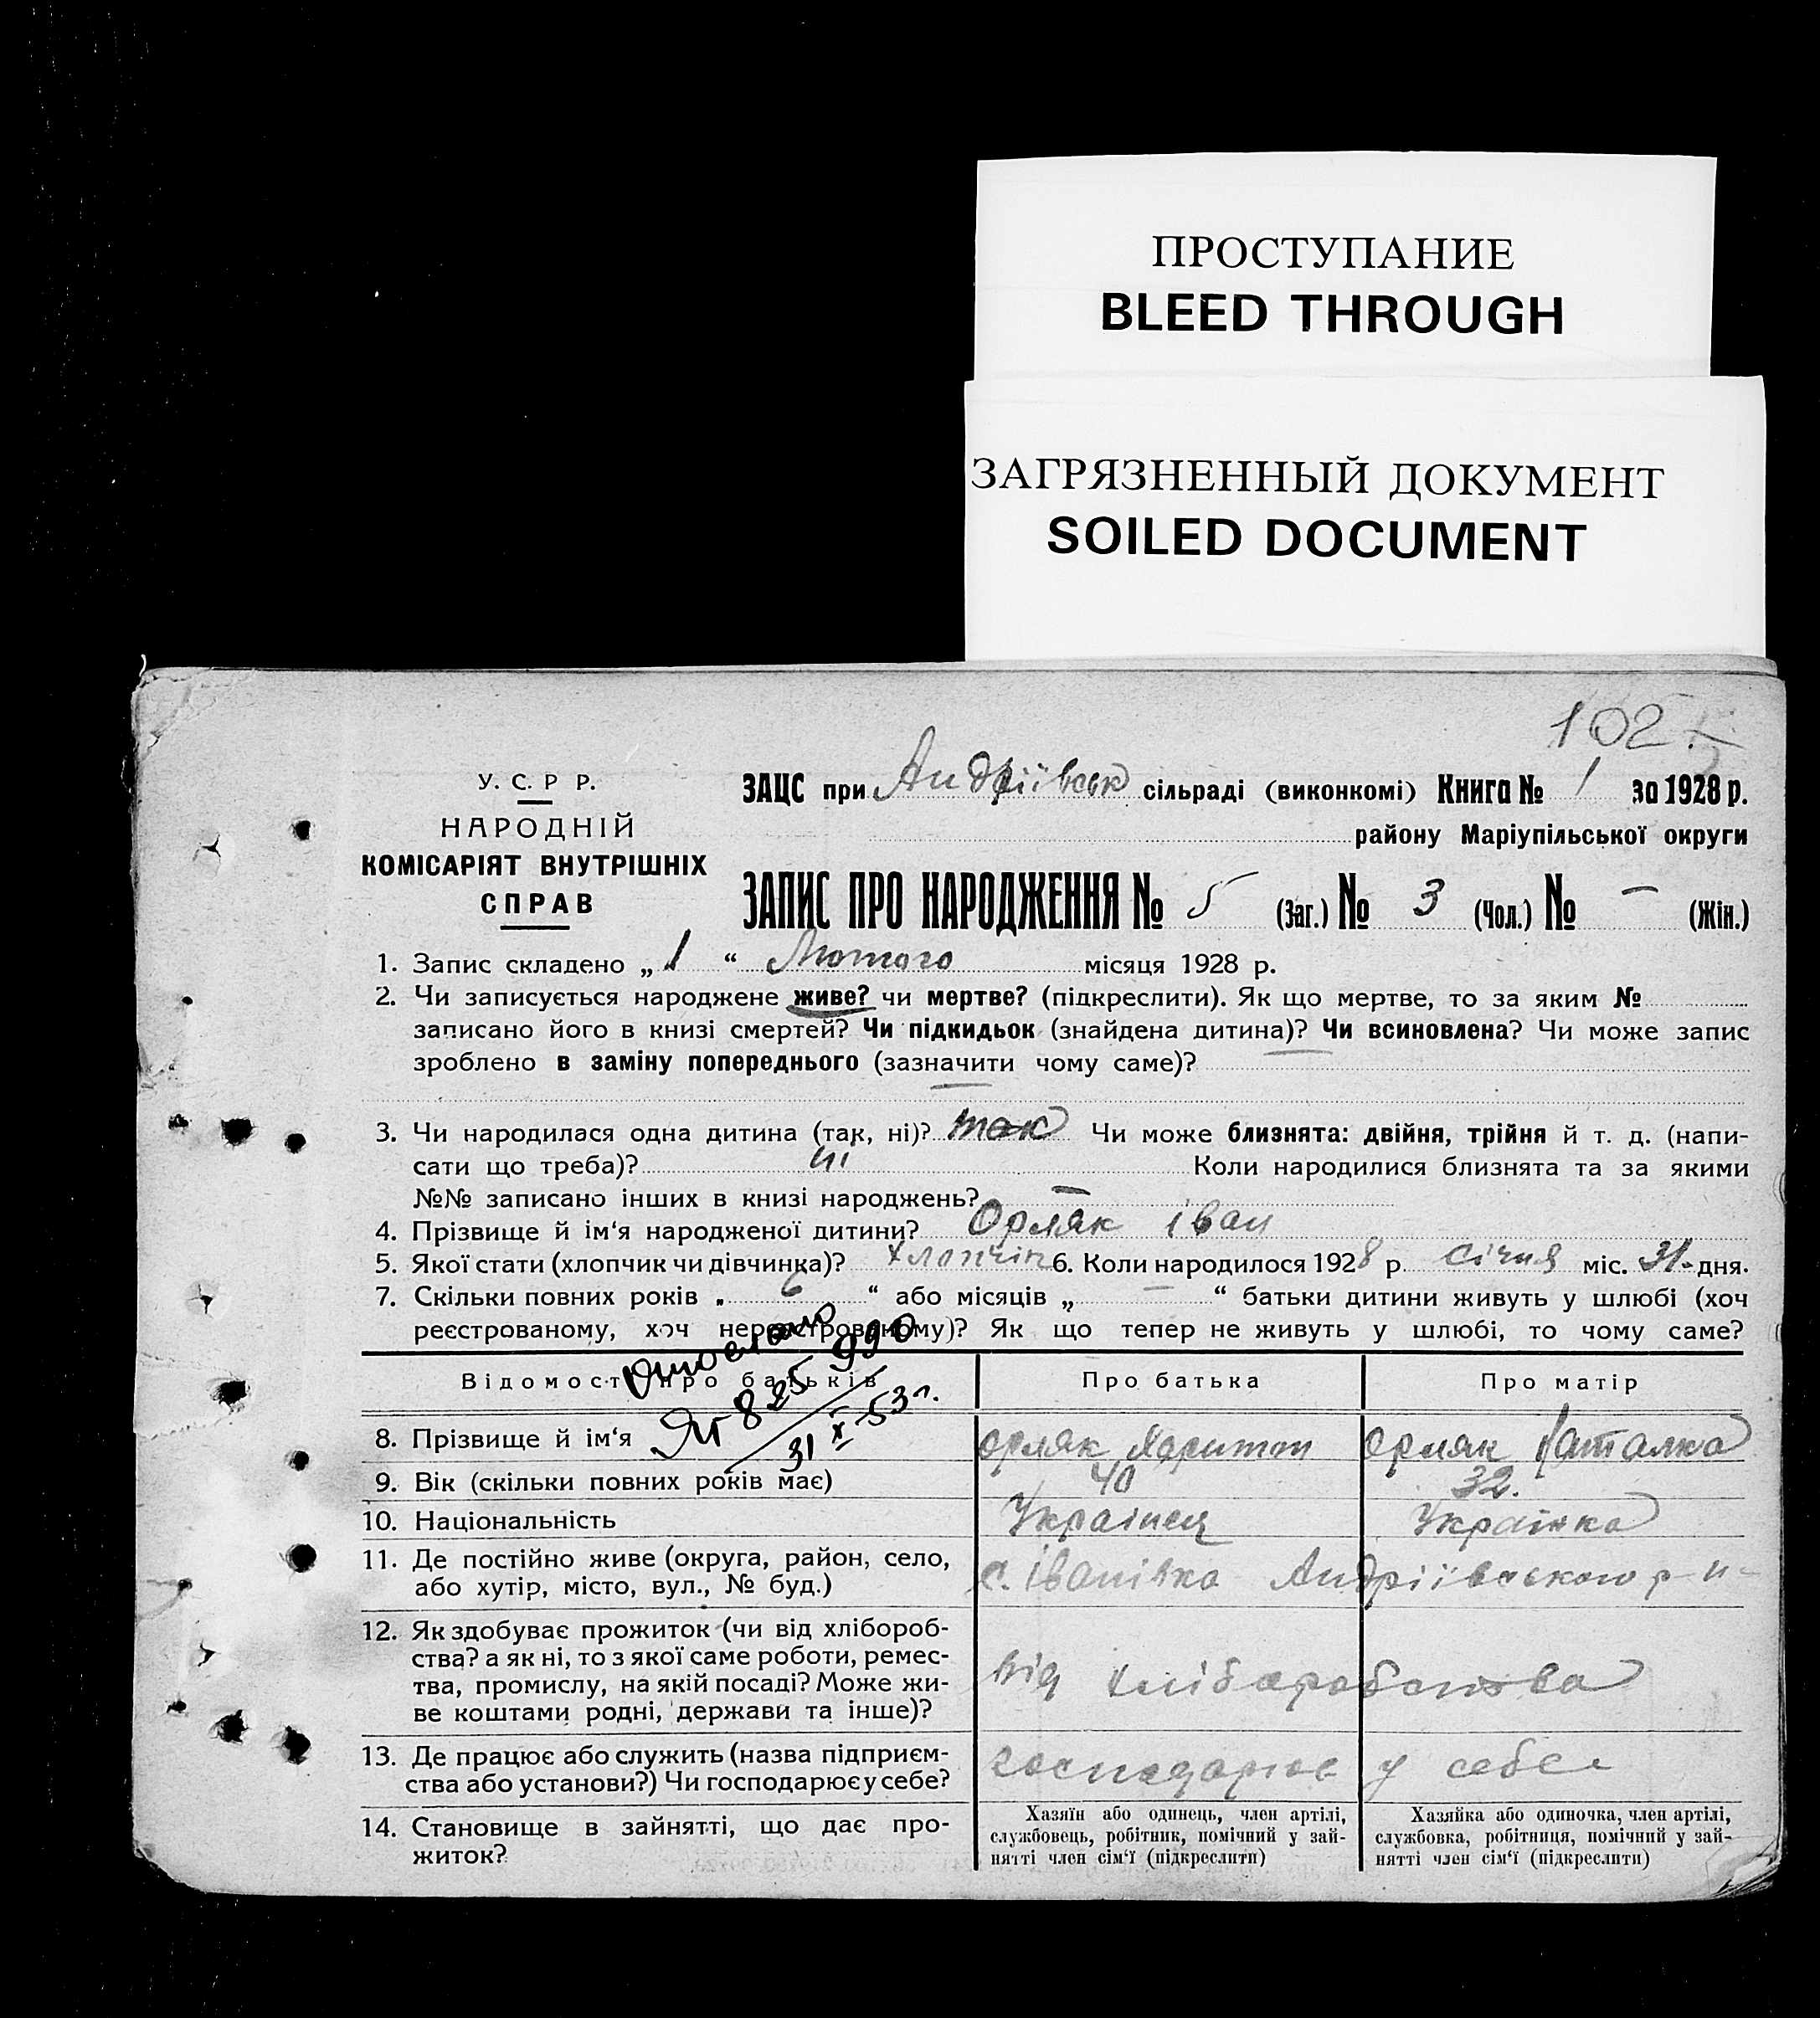 ПРОСТУПАНИЕ
BLEED THROUGH
ЗАГРЯЗНЕННЫЙ ДОКУМЕНТ
SOILED DOCUMENT
102
У. С. Р Р.
НАРОДНІЙ
КОМІСАРІЯТ ВНУТРІШНІХ
СПРАВ
ЗАЦС при Андріївськ сільраді (виконкомі) Книга № 1 за 1928 р.
району Маріупільської округи
ЗАПИС ПРО НАРОДЖЕННЯ № 5 (Заг.) № 3 (Чол.) № — (Жін.)
1. Запис складено „ 1 “ Лютого місяця 1928 р.
2. Чи записується народжене живе? чи мертве? (підкреслити). Як що мертве, то за яким №
записано його в книзі смертей? Чи підкидьок (знайдена дитина)? Чи всиновлена? Чи може запис
зроблено в заміну попереднього (зазначити чому саме)?
3. Чи народилася одна дитина (так, ні)? так Чи може близнята: двійня, трійня й т. д. (напи-
сати що треба)? ні Коли народилися близнята та за якими
№№ записано інших в книзі народжень? —
4. Прізвище й ім‘я народженої дитини? Орляк іван
5. Якої стати (хлопчик чи дівчинка)? хлопчік 6. Коли народилося 1928 р. січня міс. 31 дня.
7. Скільки повних років „ 6 “ або місяців „ — “ батьки дитини живуть у шлюбі (хоч
реєстрованому, хоч нереєстрованому)? Як що тепер не живуть у шлюбі, то чому саме?
Відомості про батьків Про батька Про матір
8. Прізвище й ім‘я Орляк Харитон Орляк Наталка
9. Вік (скільки повних років має) 40 32.
10. Національність Українец Українка
11. Де постійно живе (округа, район, село, с. Іванівка Андріївського р-н
або хутір, місто, вул., № буд.)
12. Як здобуває прожиток (чи від хлібороб-
ства? а як ні, то з якої саме роботи, ремес-
тва, промислу, на якій посаді? Може жи-
ве коштами родні, держави та інше)?
від хліборобства
13. Де працює або служить (назва підприєм-
ства або установи?) Чи господарює у себе?
господарює у себе
14. Становище в зайнятті, що дає про-
житок?
Хазяїн або одинець, член артілі,
службовець, робітник, помічний у зай-
нятті член сім‘ї (підкреслити)
Хазяйка або одиночка, член артілі,
службовка, робітниця, помічний у зай-
нятті член сім‘ї (підкреслити)